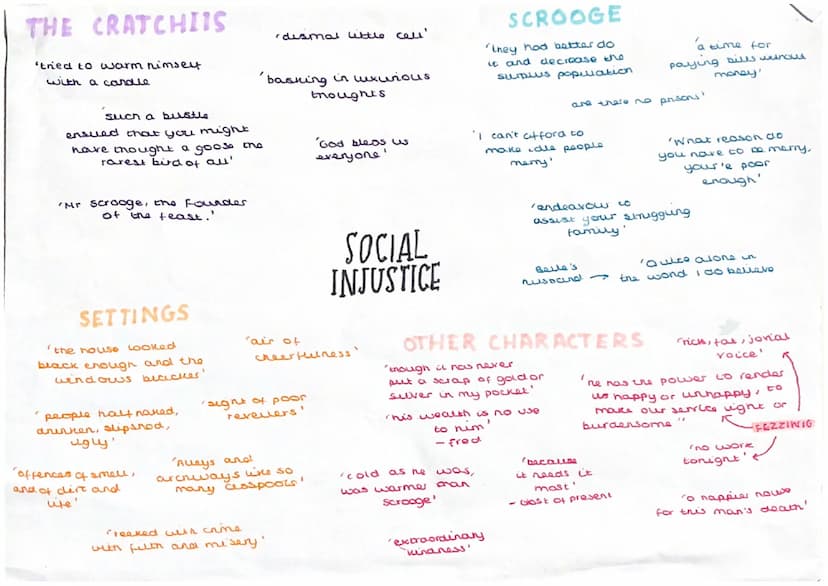 THE CRATCHITS
'tried to warm himself
with a candle
'dismal little cell'
'basking in luxurious
thoughts
'such a bustle
ensued that you might
have thought a goose the
rarest bird of all'
'God bless us
everyone'
'Mr Scrooge, the Founder
of the feast.'
SCROOGE
'they had better do
it and decrease the
surplus population
'a time for
paying bills without
money'
are there no prisons'
'I can't afford to
make idle people
merry'
'What reason do
you have to be merry,
your'e poor
enough'
'endeavour to
assist your struggling
family'
Belle's
husband →
'Quite alone in
the world I do believe
SOCIAL
INJUSTICE
SETTINGS
'the house looked
black enough and the
windows blacker'
'air of
cheerfulness'
'people half naked,
drunken, slipshod,
ugly'
'sight of poor
revellers'
'offences of smell,
and of dirt and
life'
'Alleys and
archways like so
many cesspools'
'reeked with crime
with filth and misery'
OTHER CHARACTERS
'though it has never
put a scrap of gold or
silver in my pocket'
'his wealth is no use
to him'
- fred
'rich, fat, jovial
voice'
'he has the power to render
us happy or unhappy, to
make our service light or
burdensome"
FEZZIWIG
'no work
tonight'
'cold as he was,
was warmer than
scrooge'
'because
it needs it
most'
- Ghost of present
'a happier house
for this man's death'
'extraordinary
kindness'